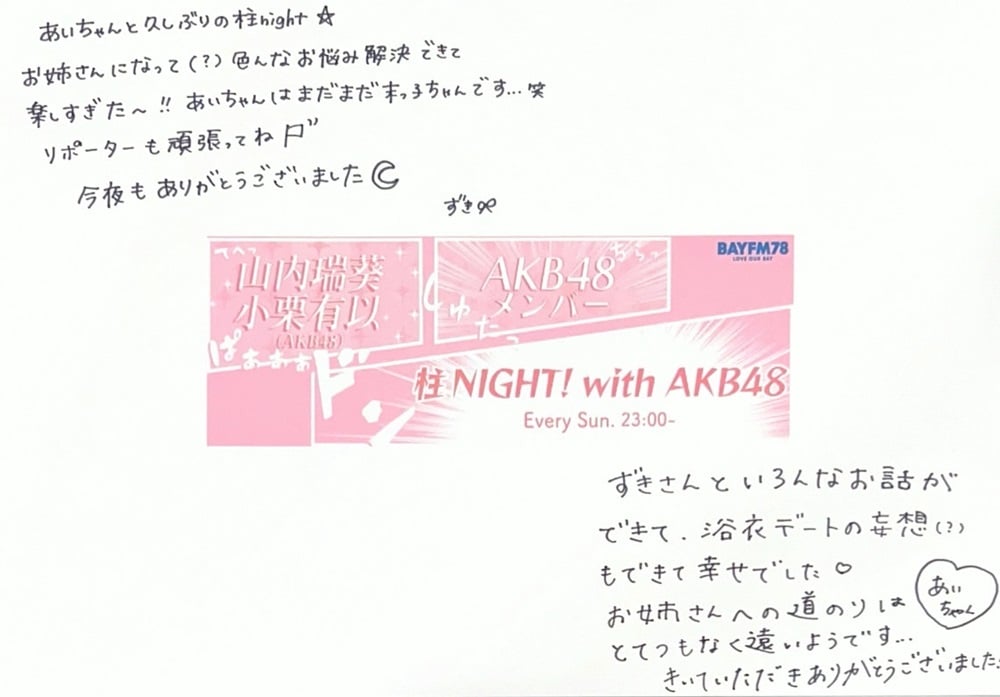 あいちゃんと久しぶりの柱night☆
お姉さんになって(?)色んなお悩み解決できて
楽しすぎた〜!! あいちゃんはまだまだ末っ子ちゃんです…笑
リポーターも頑張ってね
今夜もありがとうございました
ずき
てへっ
山内瑞葵
小栗有以
(AKB48)
AKB48
メンバー
ちらっ
BAYFM78
LOVE OUR BAY
しゅたっ
ぱぁぁぁ
ド
柱NIGHT! with AKB48
Every Sun. 23:00-
ずきさんといろんなお話が
できて、浴衣デートの妄想(?)
もできて幸せでした♡
お姉さんへの道のりは
とてつもなく遠いようです…
きいていただきありがとうございました
あい
ちゃん